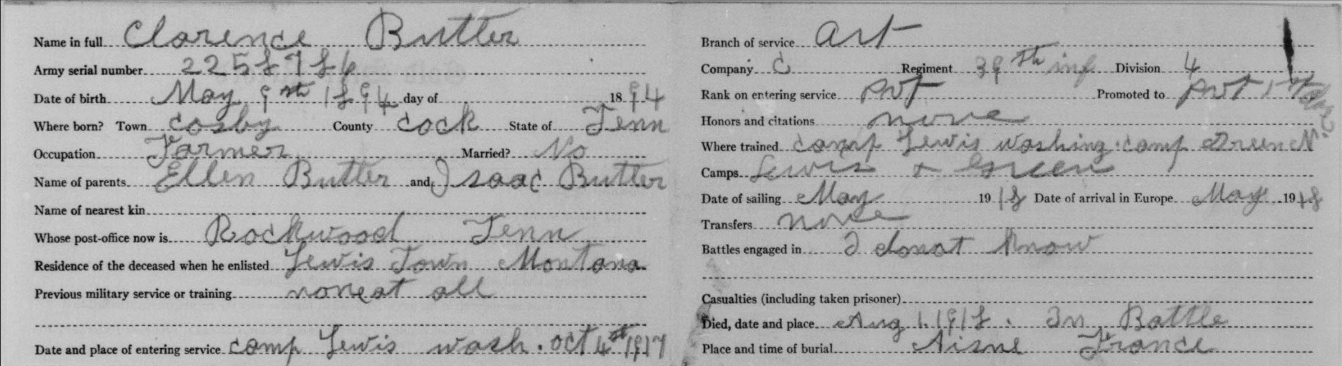 Name in full Clarence Butler
Army serial number 2258786
Date of birth May 9th 1894 day of 1894
Where born? Town Cosby County Cock State of Tenn
Occupation Farmer Married? No
Name of parents Ellen Butler and Isaac Butler
Name of nearest kin
Whose post-office now is Rockwood Tenn
Residence of the deceased when he enlisted Lewis Town Montana
Previous military service or training none at all
Date and place of entering service Camp Lewis Wash. Oct 4th 1917
Branch of service Art
Company C Regiment 39th inf Division 4
Rank on entering service Pvt Promoted to Pvt 1st
Honors and citations none
Where trained Camp Lewis Washing. Camp Green N.
Camps Lewis & Green
Date of sailing May 1918 Date of arrival in Europe May 1918
Transfers none
Battles engaged in I do not know
Casualties (including taken prisoner)
Died, date and place Aug 1. 1918. In Battle
Place and time of burial Aisne France